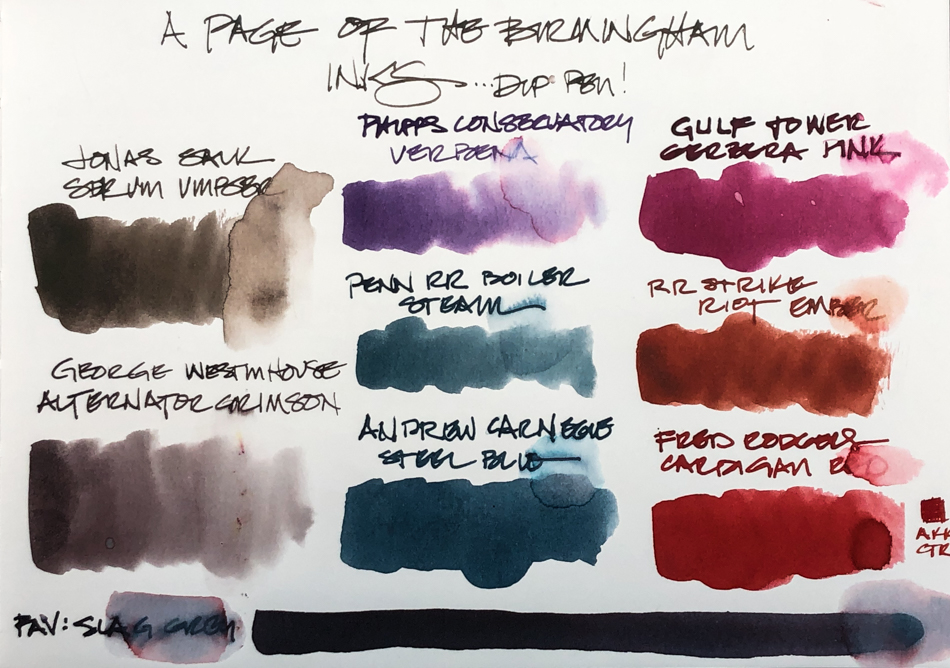 A PAGE OF THE BIRMINGHAM
INKS...DIP PEN!
JONAS SALK
SERUM UMBER
GEORGE WESTINHOUSE
ALTERNATOR CRIMSON
PHIPPS CONSERVATORY
VERBENA
PENN RR BOILER
STEAM
ANDREW CARNEGIE
STEEL BLUE
GULF TOWER
GERBERA PINK
RR STRIKE
RIOT EMBER
FRED RODGERS
CARDIGAN RED
FAV: SLAG GREY